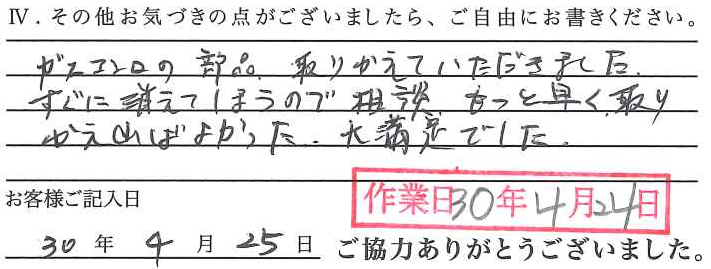 Ⅳ．その他お気づきの点がございましたら、ご自由にお書きください。
ガスコンロの部品、取りかえていただきました。
すぐに消えてしまうので相談、もっと早く、取り
かえればよかった。大満足でした。
お客様ご記入日
作業日30年4月24日
30年4月25日 ご協力ありがとうございました。